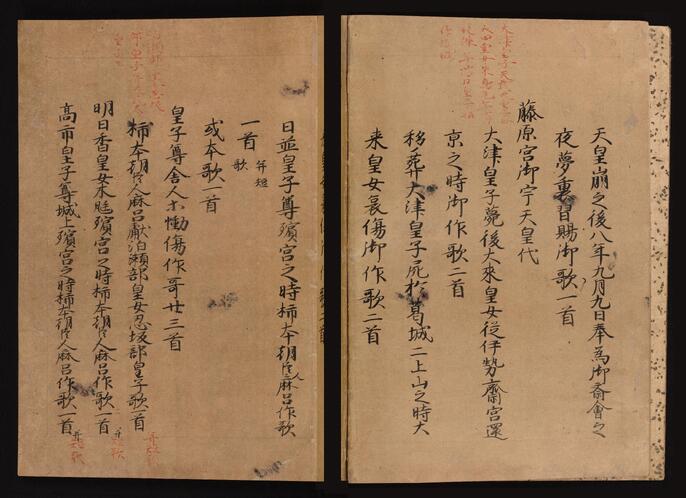 天皇崩之後八年九月九日奉為御斎會之
夜夢裏習賜御歌一首
藤原宮御宇天皇代
大津皇子薨後大来皇女従伊勢齋宮還
京之時御作歌二首
移葬大津皇子屍於葛城二上山之時大
来皇女哀傷御作歌二首
日並皇子尊殯宮之時柿本朝臣人麻呂作歌
一首 并短歌
或本歌一首
皇子尊舎人等慟傷作哥廿三首
柿本朝臣人麻呂獻泊瀬部皇女忍坂部皇子歌一首 并短歌
明日香皇女木㡀殯宮之時柿本朝臣人麻呂作歌一首 并短歌
高市皇子尊城上殯宮之時柿本朝臣人麻呂作歌一首 并短歌